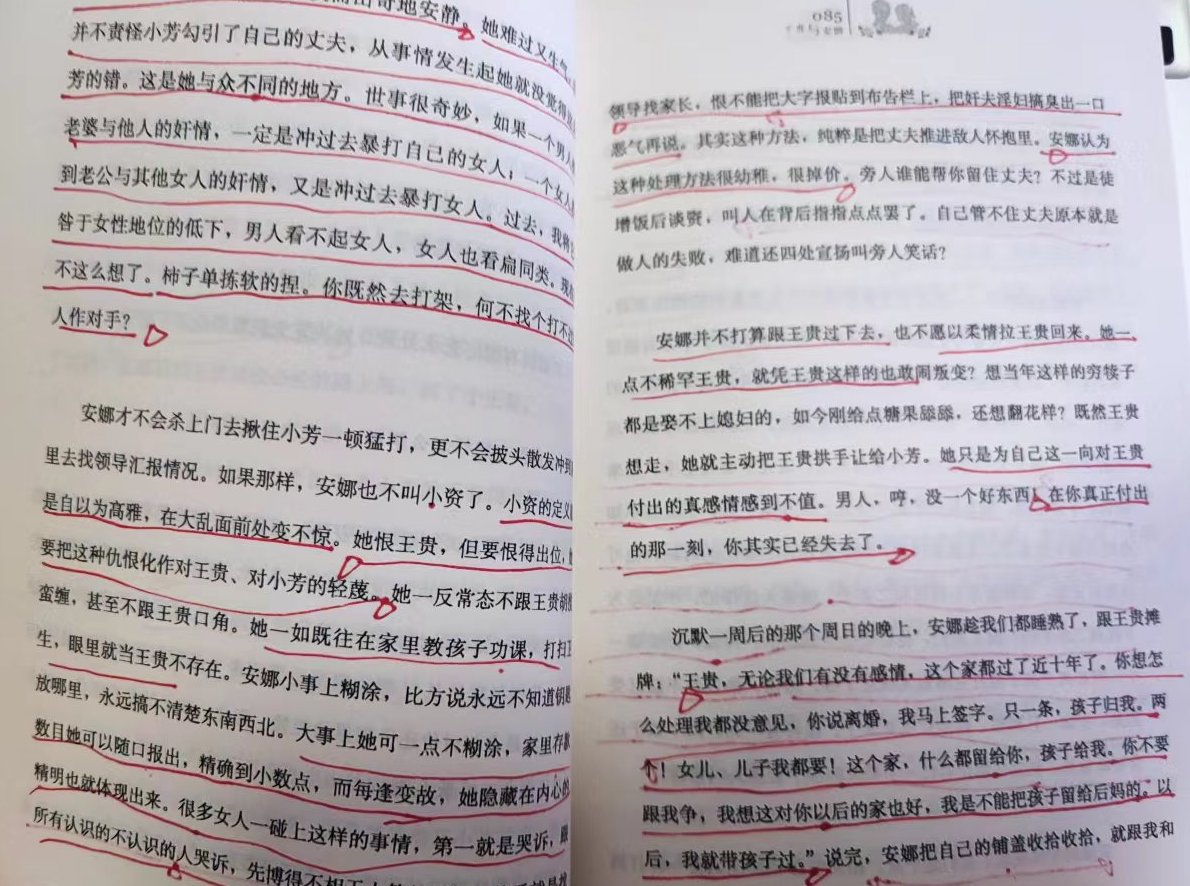 出奇地安静。她难过又生气。
并不责怪小芳勾引了自己的丈夫，从事情发生起她就没觉得
芳的错。这是她与众不同的地方。世事很奇妙，如果一个男人
老婆与他人的奸情，一定是冲过去暴打自己的女人；一个女人
到老公与其他女人的奸情，又是冲过去暴打女人。过去，我将
咎于女性地位的低下，男人看不起女人，女人也看扁同类。现
不这么想了。柿子单拣软的捏。你既然去打架，何不找个打不
人作对手？
安娜才不会杀上门去揪住小芳一顿猛打，更不会披头散发冲到
里去找领导汇报情况。如果那样，安娜也不叫小资了。小资的定义
是自以为高雅，在大乱面前处变不惊。她恨王贵，但要恨得出位，
要把这种仇恨化作对王贵、对小芳的轻蔑。她一反常态不跟王贵
蛮缠，甚至不跟王贵口角。她一如既往在家里教孩子功课，打扫
生，眼里就当王贵不存在。安娜小事上糊涂，比方说永远不知道钥匙
放哪里，永远搞不清楚东南西北。大事上她可一点不糊涂，家里存款
数目她可以随口报出，精确到小数点，而每逢变故，她隐藏在内心的
精明也就体现出来。很多女人一碰上这样的事情，第一就是哭诉，跟
所有认识的不认识的人哭诉，先博得不相
085
领导找家长，恨不能把大字报贴到布告栏上，把奸夫淫妇搞臭出一口
恶气再说。其实这种方法，纯粹是把丈夫推进敌人怀抱里。安娜认为
这种处理方法很幼稚，很掉价。旁人谁能帮你留住丈夫？不过是徒
增饭后谈资，叫人在背后指指点点罢了。自己管不住丈夫原本就是
做人的失败，难道还四处宣扬叫旁人笑话？
安娜并不打算跟王贵过下去，也不愿以柔情拉王贵回来。她一
点不稀罕王贵，就凭王贵这样的也敢闹叛变？想当年这样的穷犊子
都是娶不上媳妇的，如今刚给点糖果舔舔，还想翻花样？既然王贵
想走，她就主动把王贵拱手让给小芳。她只是为自己这一向对王贵
付出的真感情感到不值。男人，哼，没一个好东西！在你真正付出
的那一刻，你其实已经失去了。
沉默一周后的那个周日的晚上，安娜趁我们都睡熟了，跟王贵摊
牌：“王贵，无论我们有没有感情，这个家都过了近十年了。你想怎
么处理我都没意见，你说离婚，我马上签字。只一条，孩子归我。两
个！女儿、儿子我都要！这个家，什么都留给你，孩子给我。你不要
跟我争，我想这对你以后的家也好，我是不能把孩子留给后妈的。以
后，我就带孩子过。”说完，安娜把自己的铺盖收拾收拾，就跟我和